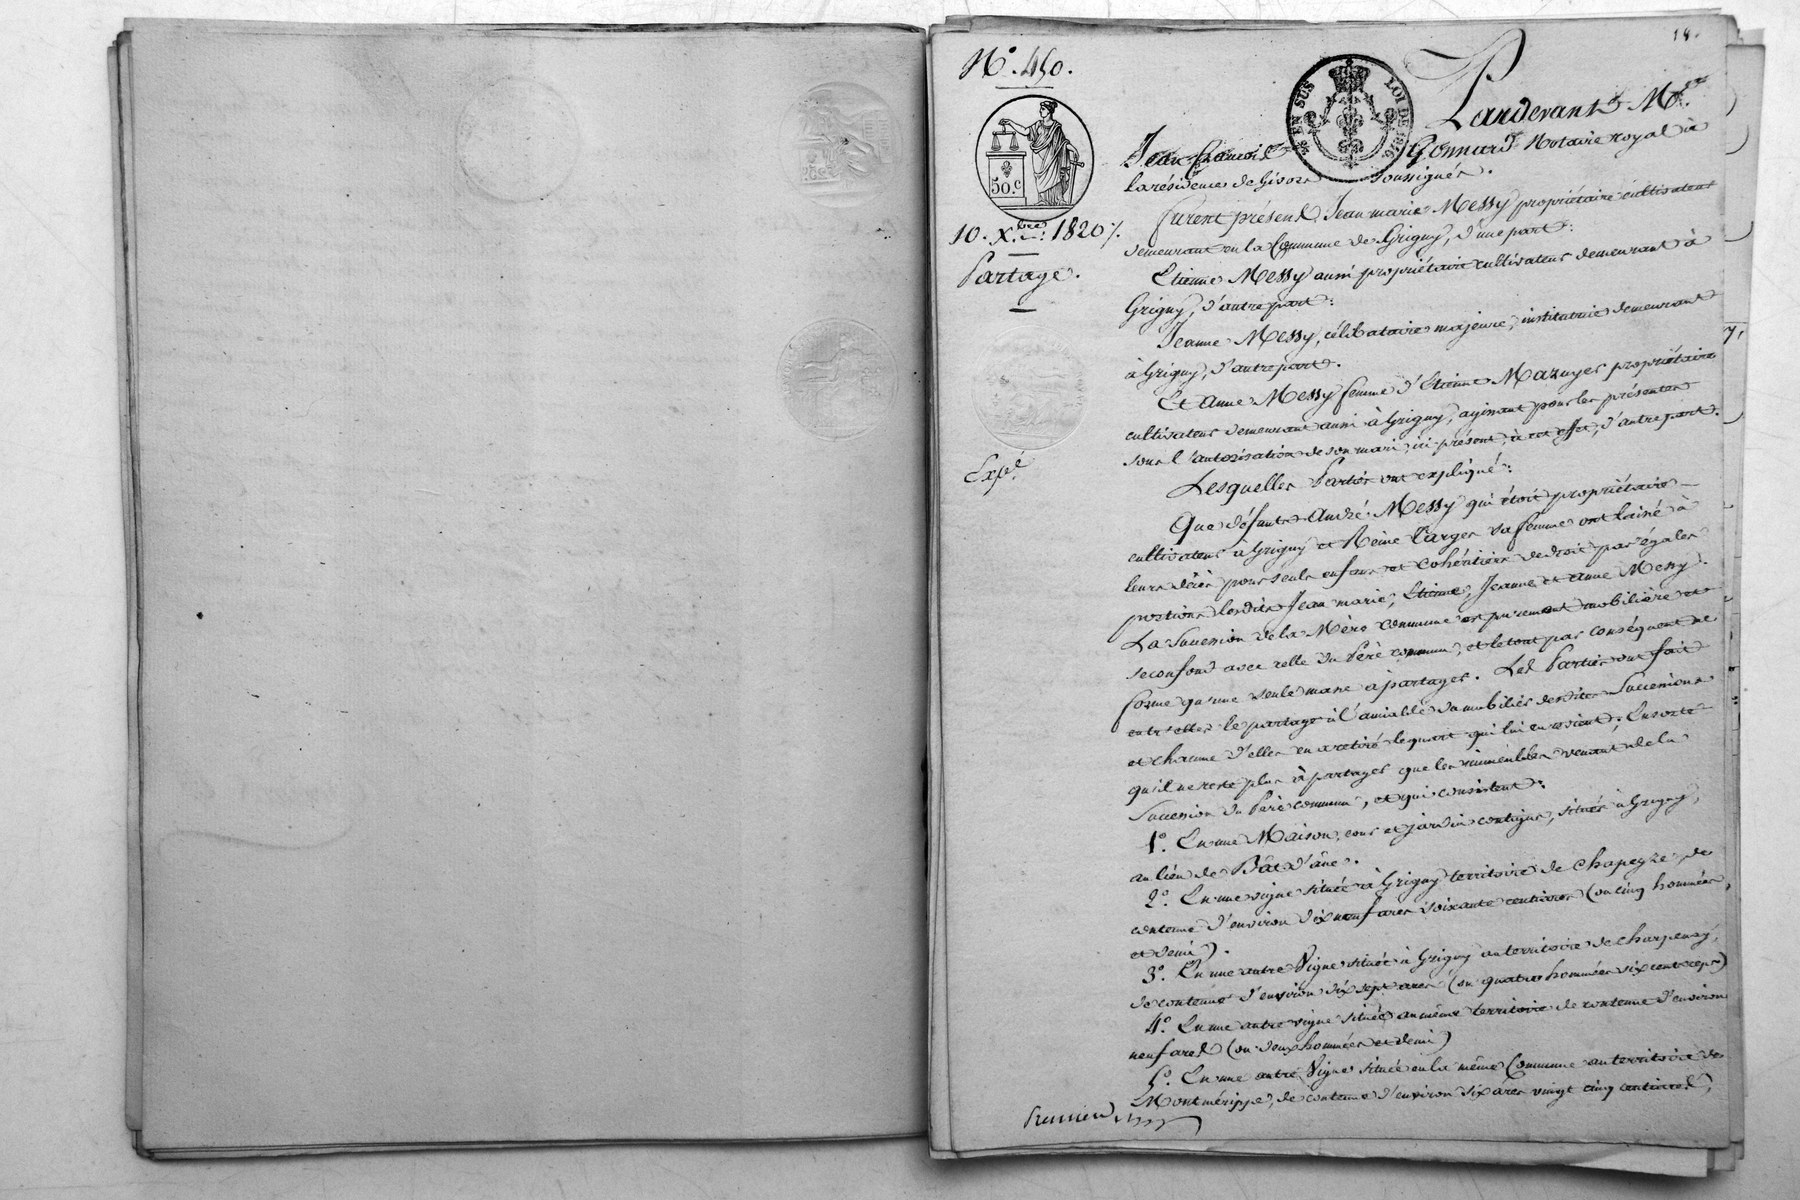 18.
N.° 450.
50.c
EN SUS
LOI DE 1816
10. X.bre 1820 /.
Partage.
Expé
Pardevant M.tre
Jean François Gonnard Notaire royal à
la résidence de Givors soussigné.
furent présens Jean marie Messy propriétaire cultivateur
demeurant en la Commune de Grigny, d'une part:
Etienne Messy aussi propriétaire cultivateur demeurant à
Grigny, d'autre part:
Jeanne Messy, célibataire majeure, institutrice demeurant
à Grigny, d'autre part.
Et Anne Messy femme d'Etienne Mazuyer propriétaire
cultivateur demeurant aussi à Grigny, agissant pour les présentes
sous l'autorisation de son mari, ici présent, à cet effet, d'autre part.
Lesquelles Parties ont expliqué:
Que défunts André Messy qui étoit propriétaire
cultivateur à Grigny et Reine Targer sa femme ont laissé à
leurs décès pour seuls enfans et cohéritiers de droit par égales
portions lesdits Jean marie, Etienne, Jeanne et anne Messy.
La Succession de la Mère commune est purement mobilière et
se confond avec celle du Père commun, et le tout par conséquent ne
forme qu'une seule masse à partager. Les Parties ont fait
entr'elles le partage à l'amiable du mobilier desdites Successions
et chacune d'elles en a retiré le quart qui lui en revient; Ensorte
qu'il ne reste plus à partager que les immeubles venant de la
Succession du Père commun, et qui consistent:
1.° En une Maison, cour et jardin contigus, situés à Grigny,
au lieu de Bât d'âne.
2.° En une vigne située à Grigny territoire de Chapeyze, de
contenue d'environ dix neuf ares soixante centiares (ou cinq hommées
et demi).
3.° En une autre Vigne située à Grigny au territoire de Charpenay,
de contenue d'environ dix sept ares (ou quatre hommées six cent ceps)
4.° En une autre vigne située au même territoire de contenue d'environ
neuf ares (ou deux hommées et demi)
5.° En une autre Vigne située en la même Commune au territoire de
Montmérippe, de contenue d'environ six ares vingt cinq centiares,